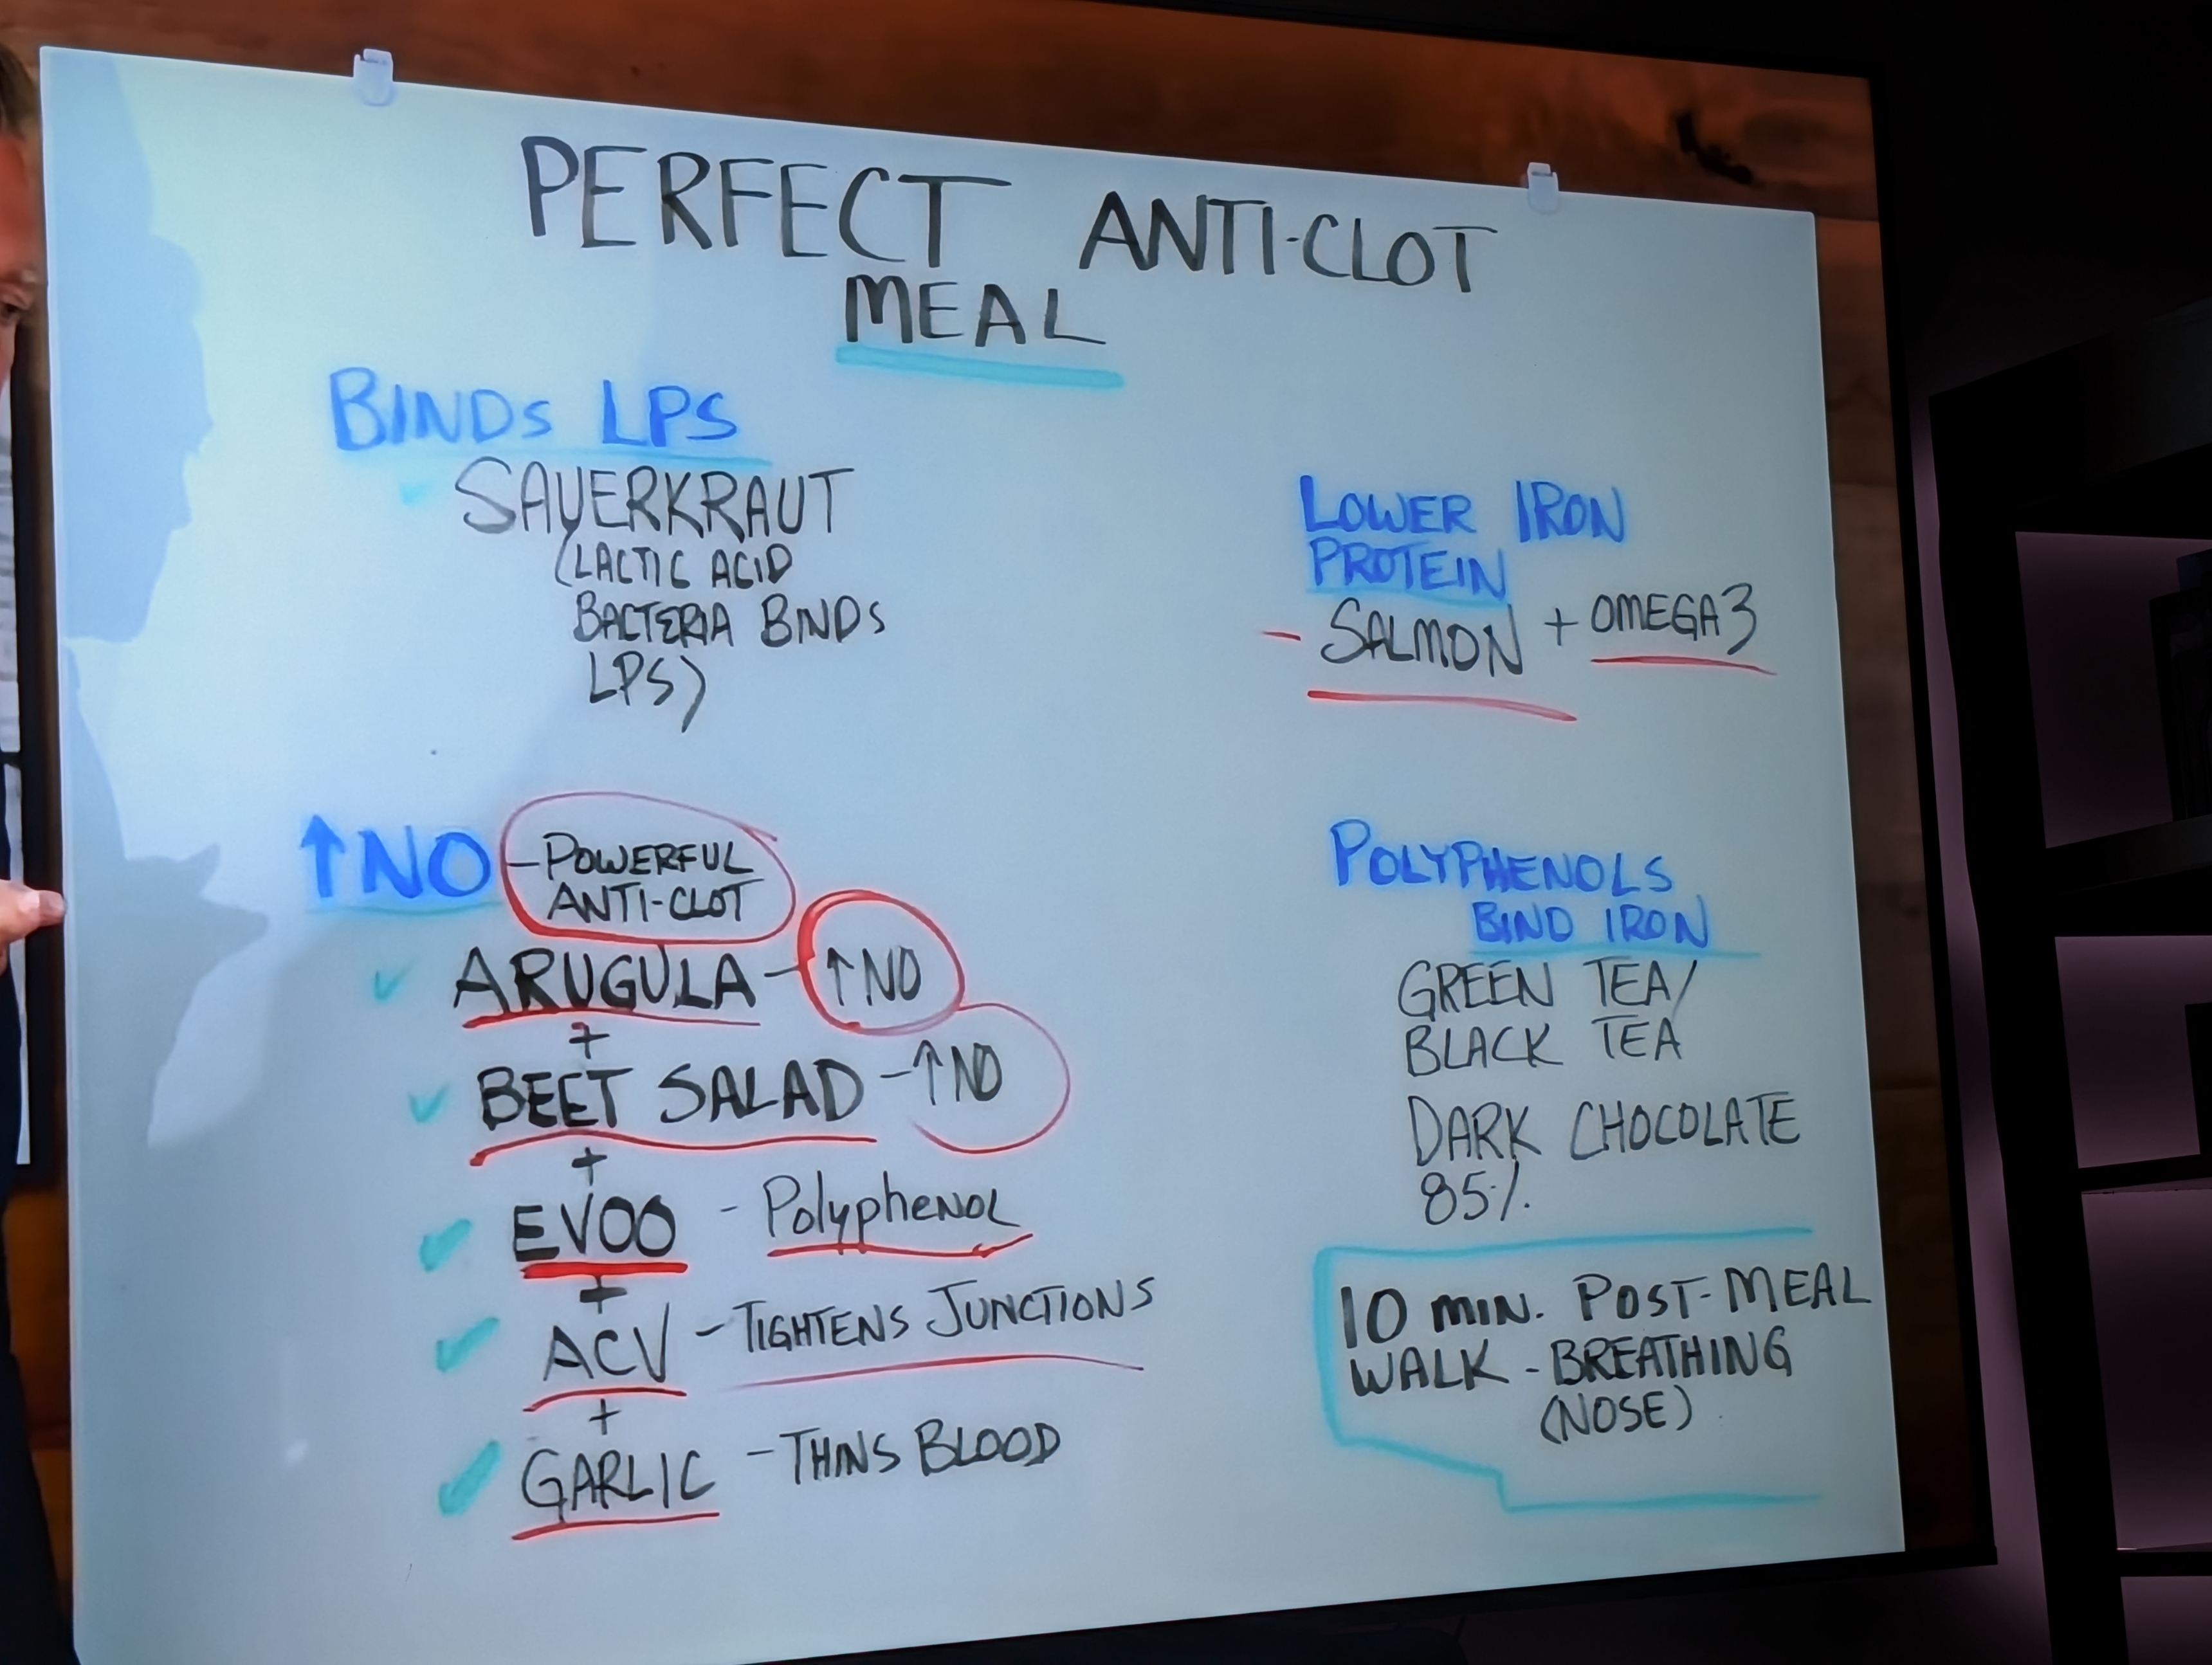 PERFECT ANTI-CLOT
MEAL
BINDS LPS
SAUERKRAUT
(LACTIC ACID
BACTERIA BINDS
LPS)
↑NO - POWERFUL
ANTI-CLOT
ARUGULA - ↑NO
+
BEET SALAD - ↑NO
+
EVOO - Polyphenol
+
ACV - TIGHTENS JUNCTIONS
+
GARLIC - THINS BLOOD
LOWER IRON
PROTEIN
- SALMON + OMEGA 3
POLYPHENOLS
BIND IRON
GREEN TEA/
BLACK TEA
DARK CHOCOLATE
85%
10 MIN. POST-MEAL
WALK - BREATHING
(NOSE)